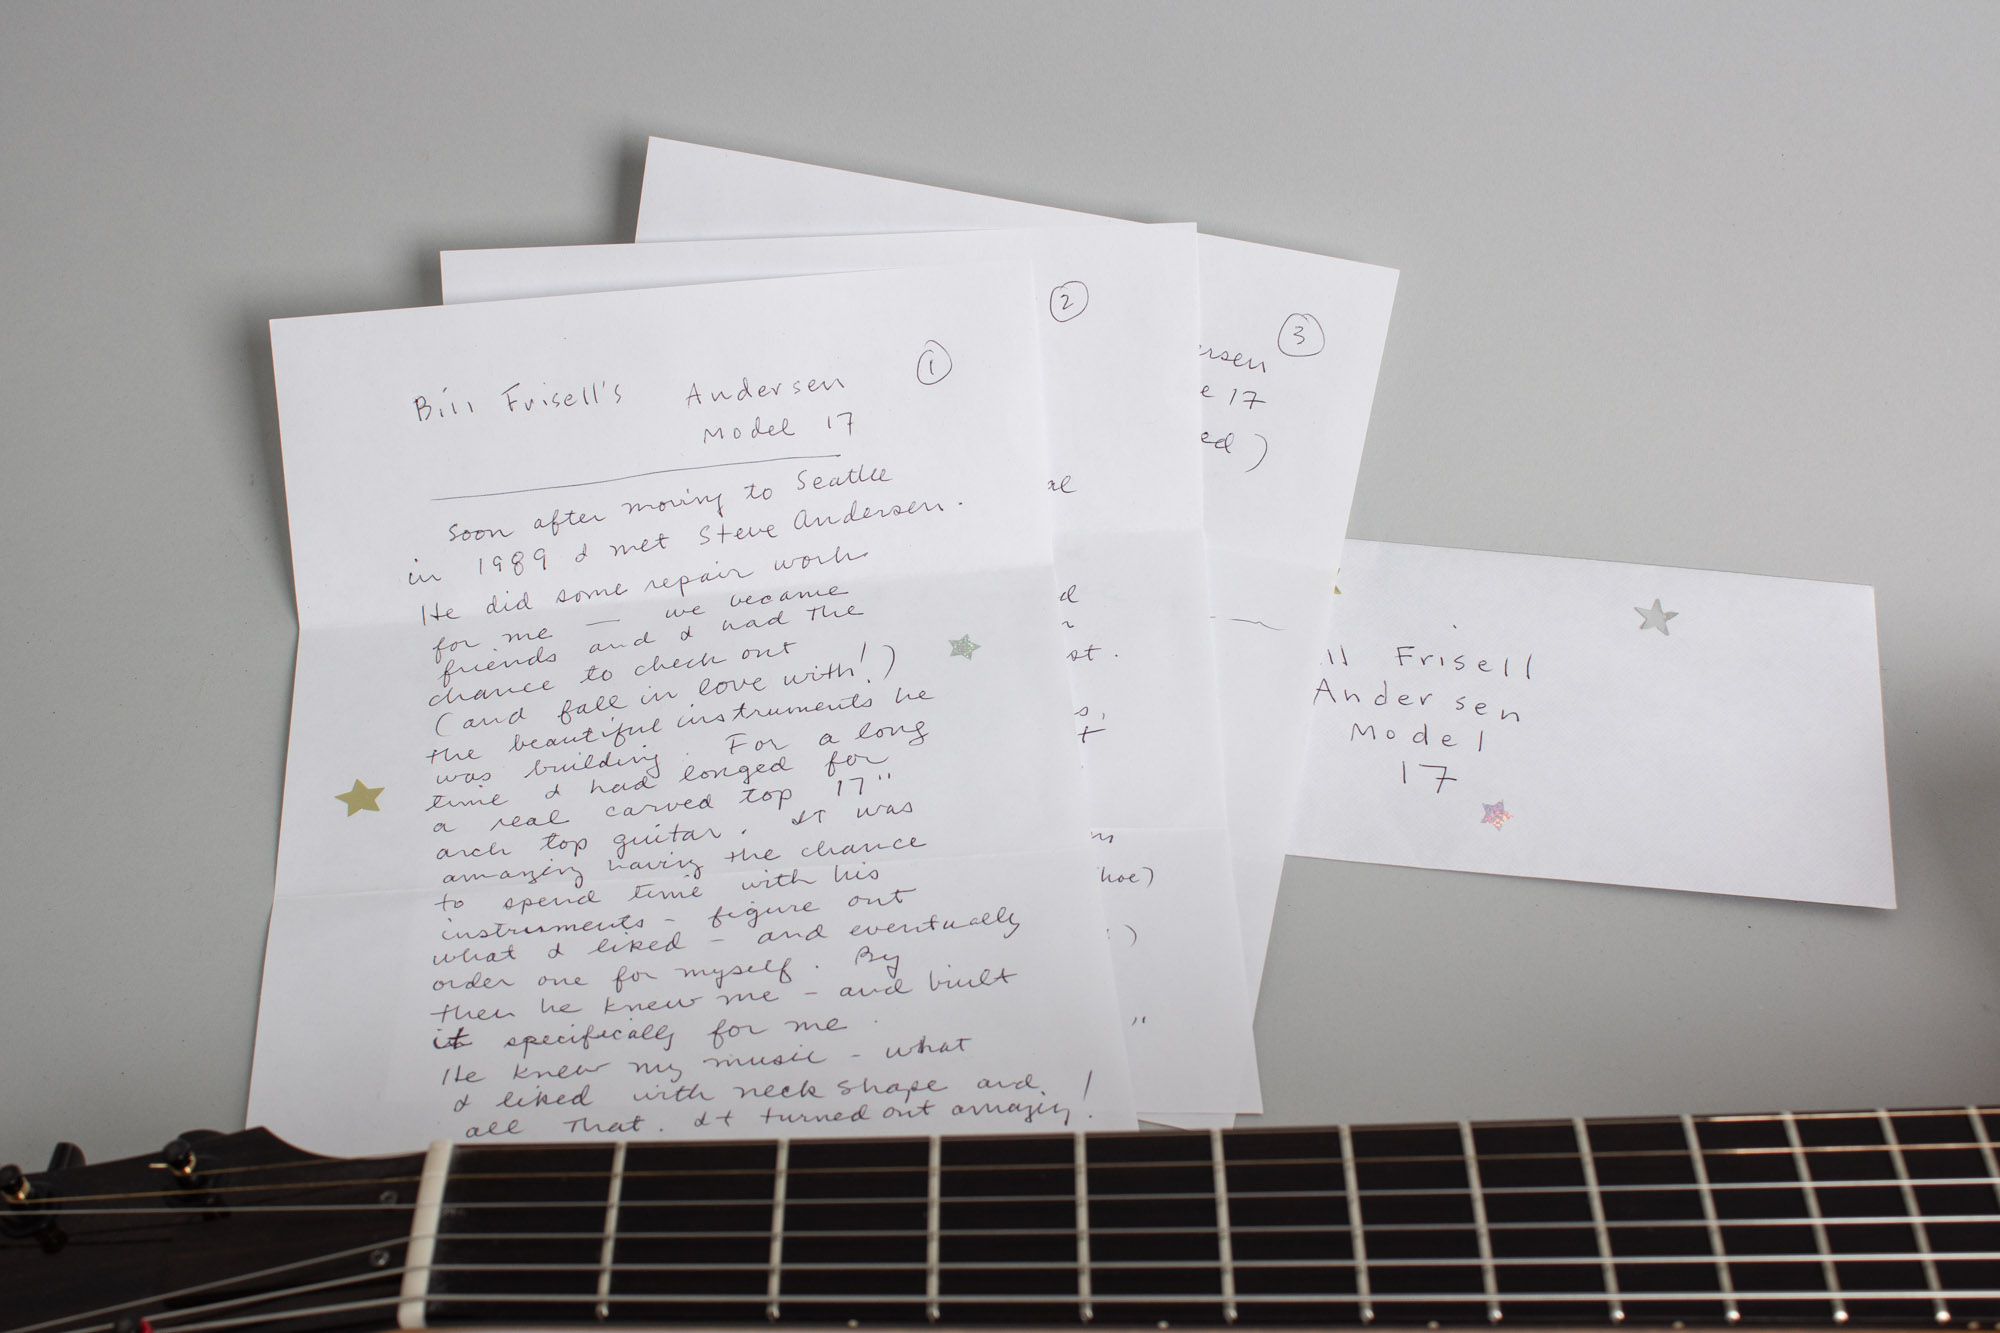 Bill Frisell's Andersen
Model 17
1
Soon after moving to Seattle
in 1989 I met Steve Andersen.
He did some repair work
for me — we became
friends and I had the
chance to check out
(and fall in love with!)
the beautiful instruments he
was building. For a long
time I had longed for
a real carved top 17"
arch top guitar. It was
amazing having the chance
to spend time with his
instruments - figure out
what I liked - and eventually
order one for myself. By
then he knew me - and built
it specifically for me.
He knew my music - what
I liked with neck shape and
all that. It turned out amazing!
2
st.
s,
hoe)
)
"
3
rsen
e 17
ed)
ll Frisell
Andersen
Model
17